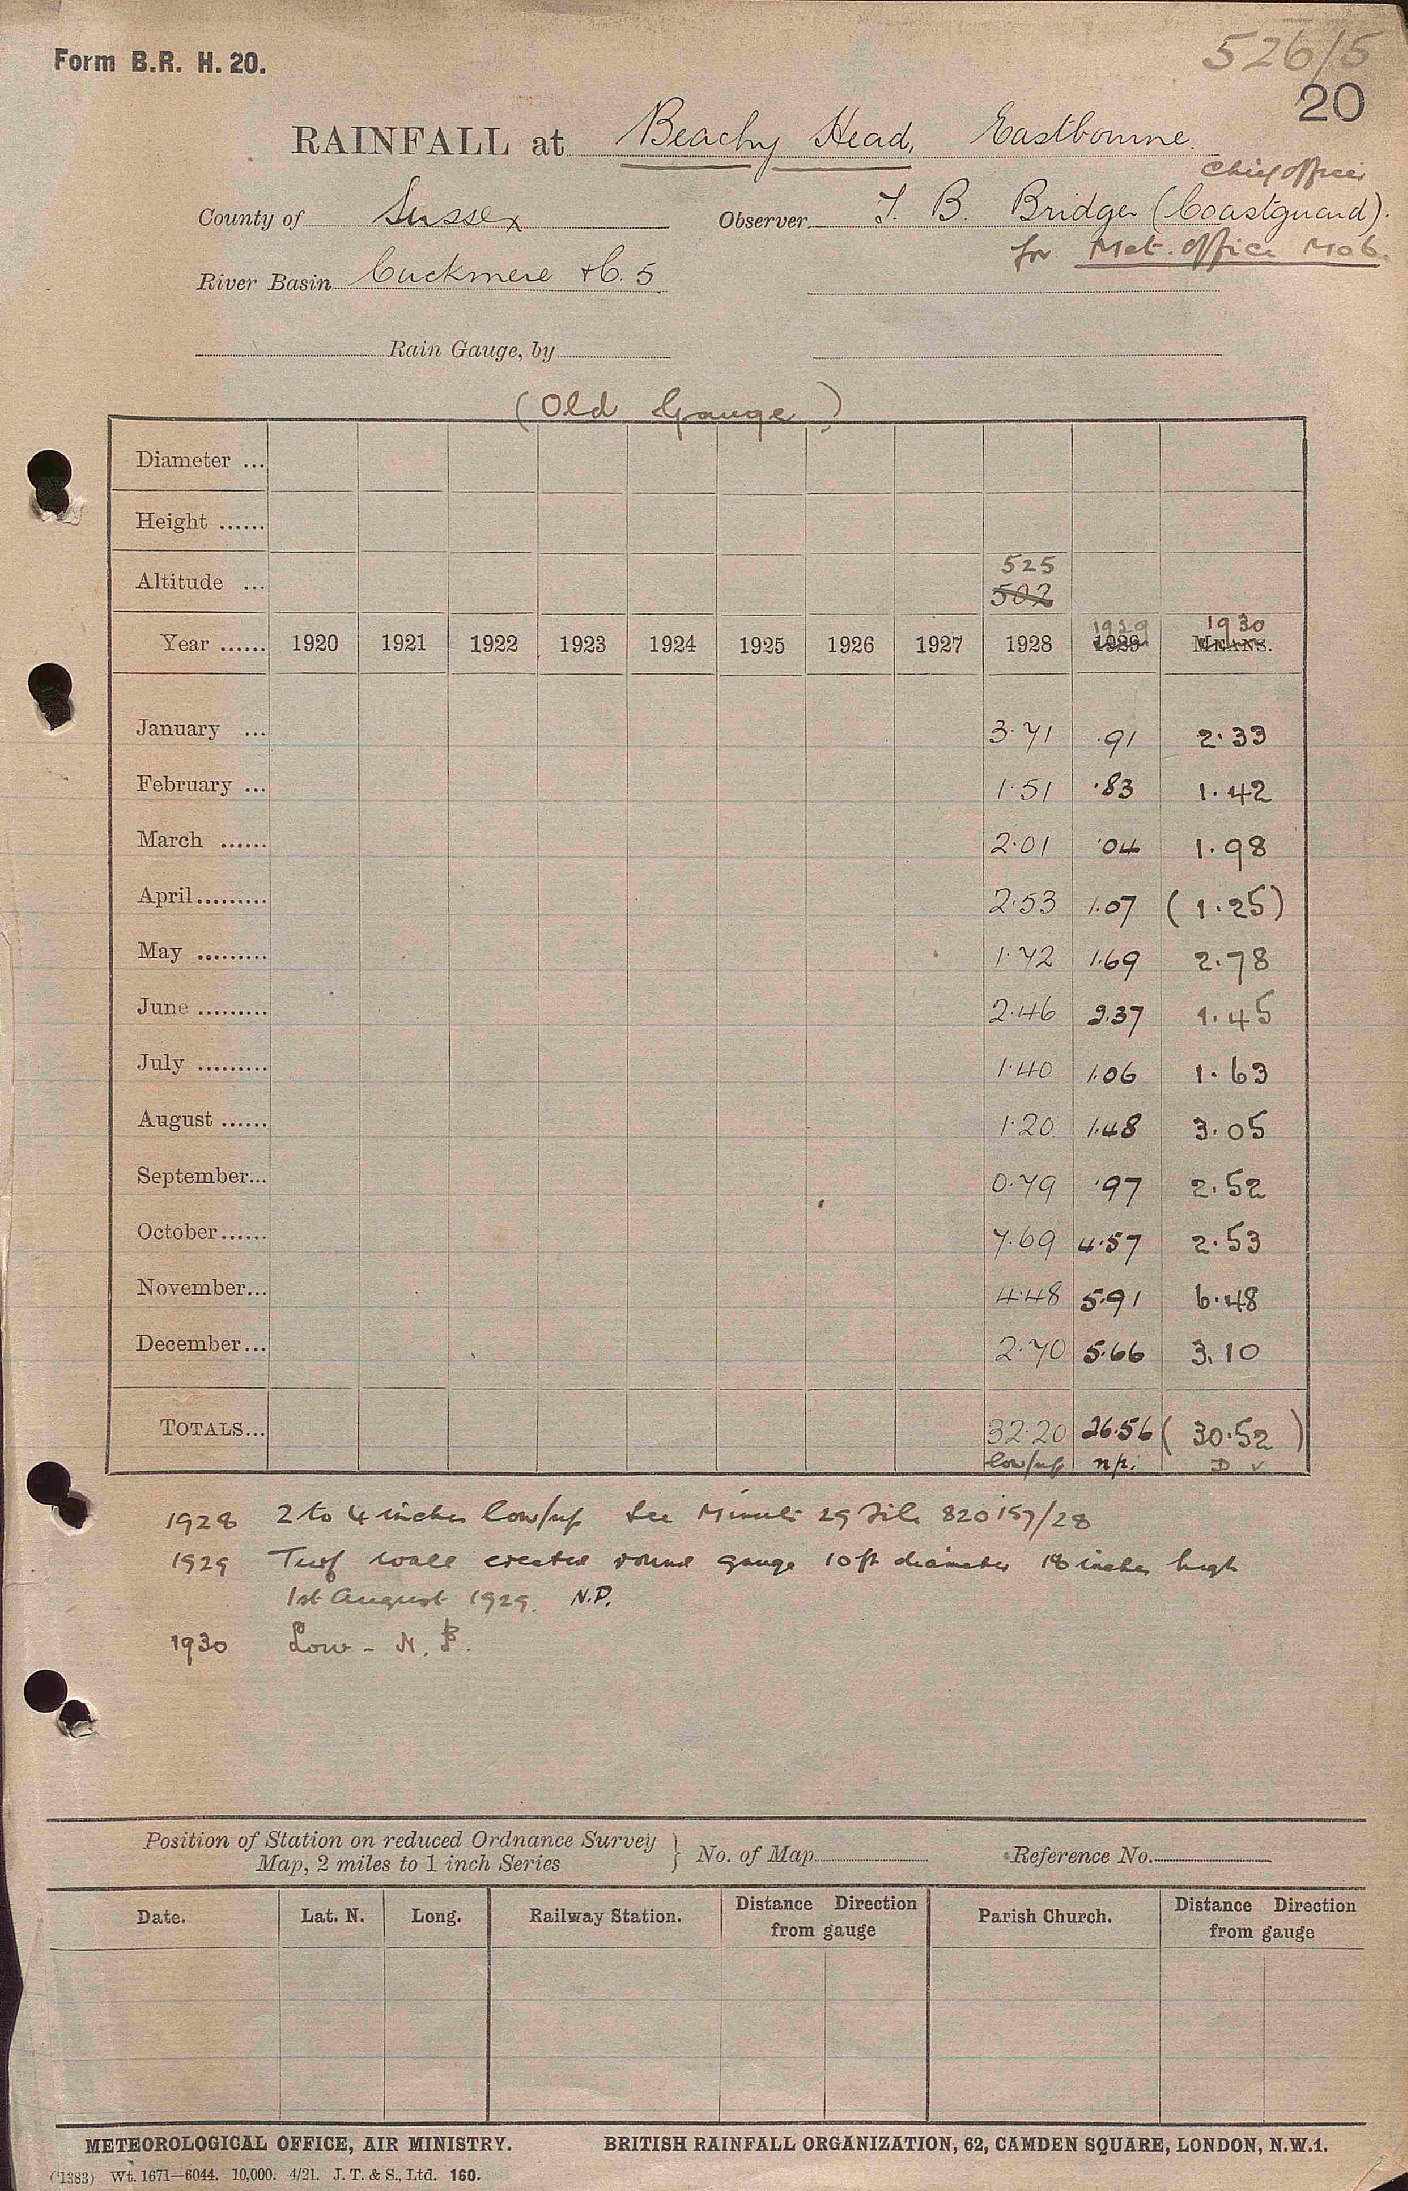 Form B.R. H. 20.
526/5
20
RAINFALL at Beachy Head, Eastbourne.
Chief officer
County of Sussex Observer T. B. Bridger (Coastguard).
for Met. Office M.O.6.
River Basin Cuckmere &C. 5
Rain Gauge, by
(Old Gauge)
Diameter ...
Height ......
Altitude ... 525
502
1929 1930
Year ...... 1920 1921 1922 1923 1924 1925 1926 1927 1928 1929 MEANS.
January ... 3.71 .91 2.33
February ... 1.51 .83 1.42
March ...... 2.01 .04 1.98
April......... 2.53 1.07 (1.25)
May ......... 1.72 1.69 2.78
June ......... 2.46 2.37 1.45
July ......... 1.40 1.06 1.63
August ...... 1.20 1.48 3.05
September... 0.79 .97 2.52
October...... 7.69 4.57 2.53
November... 4.48 5.91 6.48
December... 2.70 5.66 3.10
TOTALS... 32.20 26.56 (30.52)
low/np n.p.
1928 2 to 4 inches low/np See Minute 29 File 820157/28
1929 Turf wall erected round gauge 10ft diameter 18 inches high
1st August 1929. N.P.
1930 Low - N.P.
Position of Station on reduced Ordnance Survey
Map, 2 miles to 1 inch Series } No. of Map Reference No.
Date. Lat. N. Long. Railway Station. Distance Direction from gauge Parish Church. Distance Direction from gauge
METEOROLOGICAL OFFICE, AIR MINISTRY. BRITISH RAINFALL ORGANIZATION, 62, CAMDEN SQUARE, LONDON, N.W.1.
(1383) Wt. 1671—6044. 10,000. 4/21. J. T. & S., Ltd. 160.